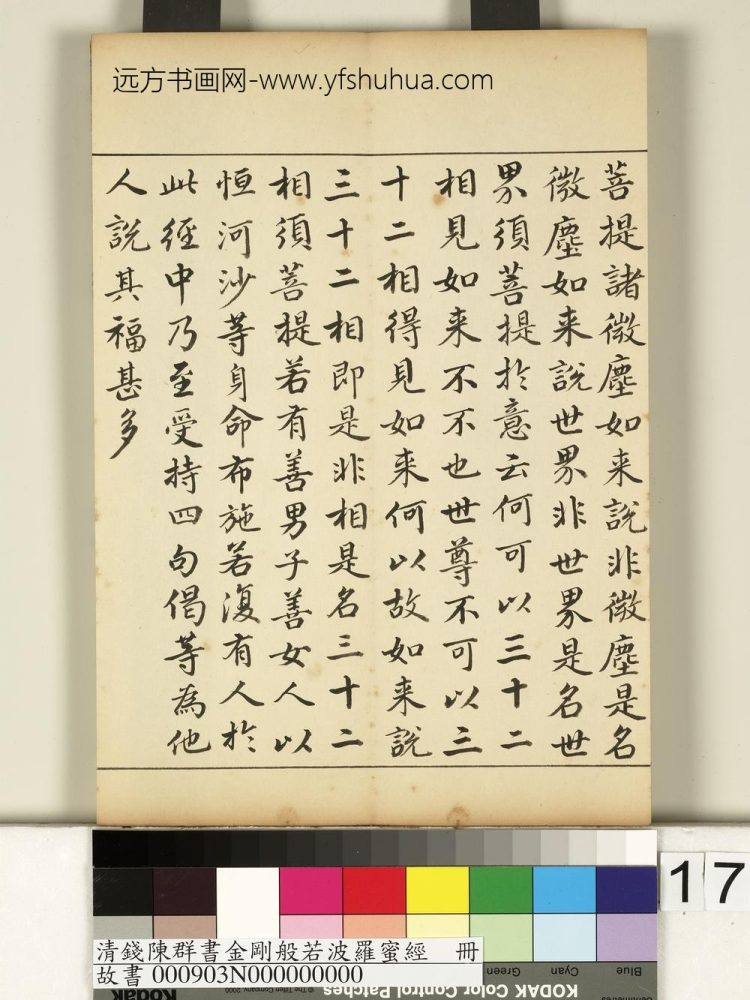 远方书画网-www.yfshuhua.com
菩提諸微塵如来說非微塵是名
微塵如来說世界非世界是名世
界須菩提於意云何可以三十二
相見如来不不也世尊不可以三
十二相得見如来何以故如来說
三十二相即是非相是名三十二
相須菩提若有善男子善女人以
恒河沙等身命布施若復有人於
此經中乃至受持四句偈等為他
人說其福甚多
17
清錢陳群書金剛般若波羅蜜經 冊
故書 000903N000000000
Green
Cyan
Blue
KODAK Color Control Patches
Kodak